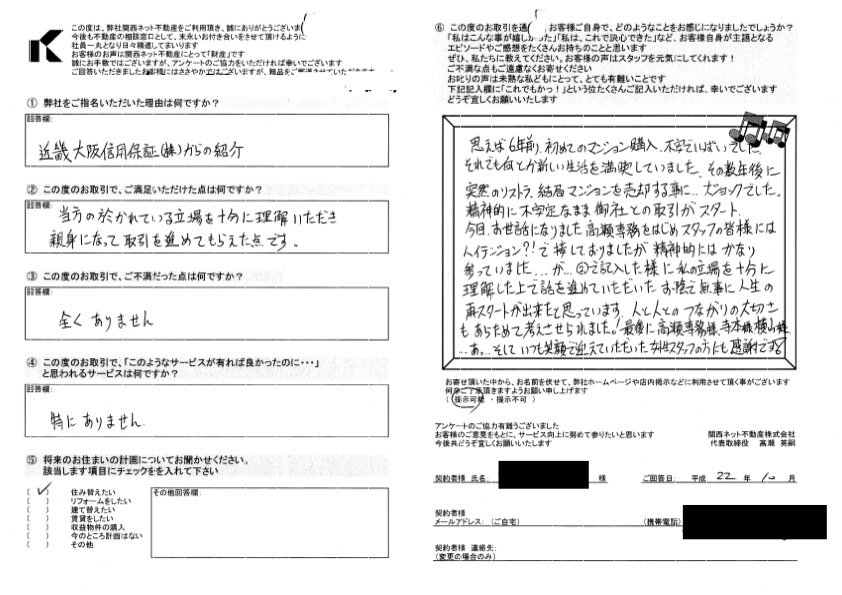 この度は、弊社関西ネット不動産をご利用頂き、誠にありがとうございま
今後も不動産の相談窓口として、末永いお付き合いをさせて頂けるように
社員一丸となり日々精進してまいります
お客様のお声は関西ネット不動産にとって「財産」です
誠にお手数ではございますが、アンケートのご協力をいただければ幸いでございます
ご回答いただきましたお客様にはささやかではございますが、粗品をご郵送させていただきます
① 弊社をご指名いただいた理由は何ですか？
回答欄:
近畿大阪信用保証(株)からの紹介
② この度のお取引で、ご満足いただけた点は何ですか？
回答欄:
当方の於かれている立場を十分に理解いただき
親身になって取引を進めてもらえた点です。
③ この度のお取引で、ご不満だった点は何ですか？
回答欄:
全く ありません
④ この度のお取引で、「このようなサービスが有れば良かったのに・・・」
と思われるサービスは何ですか？
回答欄:
特に ありません.
⑤ 将来のお住まいの計画についてお聞かせください。
該当します項目にチェックをを入れて下さい
(✓) 住み替えたい
( ) リフォームをしたい
( ) 建て替えたい
( ) 賃貸をしたい
( ) 収益物件の購入
( ) 今のところ計画はない
( ) その他
その他回答欄:
⑥ この度のお取引を通 、お客様ご自身で、どのようなことをお感じになりましたでしょうか？
「私はこんな事が嬉しかった」「私は、これで決心できた」など、お客様自身が主題となる
エピソードやご感想をたくさんお持ちのことと思います
ぜひ、私たちに教えてください。お客様の声はスタッフを元気にしてくれます！
ご不満な点もご遠慮なくお寄せください
お叱りの声は未熟な私どもにとって、とても有難いことです
下記記入欄に「これでもかっ！」という位たくさんご記入いただければ、幸いでございます
どうぞ宜しくお願いいたします
思えば6年前、初めてのマンション購入、不安でいっぱいでした.
それでも何とか新しい生活を満喫していました. その数年後に
突然のリストラ. 結局マンションを売却する事に... 大ショックでした.
精神的に不安定なまま 御社との取引がスタート.
今日、お世話になりました 高瀬専務をはじめスタッフの皆様には
ハイテンション?!で接しておりましたが 精神的にはかなり
参っていました...が... ②で記入した様に私の立場を十分に
理解した上で話を進めていただいた お陰で無事に人生の
再スタートが出来たと思っています. 人と人とのつながりの大切さ
もあらためて考えさせられました。最後に高瀬専務様、寺本様、横山様、
...あっ...そして いつも笑顔で迎えていただいた女性スタッフの方にも感謝です
お寄せ頂いた中から、お名前を伏せて、弊社ホームページや店内掲示などに利用させて頂く事がございます
何卒ご了承頂きますようお願い申し上げます
( 提示可能 ・ 提示不可 )
アンケートのご協力有難うございました
お客様のご意見をもとに、サービス向上に努めて参りたいと思います
今後共どうぞ宜しくお願いいたします
関西ネット不動産株式会社
代表取締役 高瀬 英嗣
契約者様 氏名: 様 ご回答日: 平成 22 年 10 月
契約者様
メールアドレス: (ご自宅) (携帯電話)
契約者様 連絡先:
(変更の場合のみ)